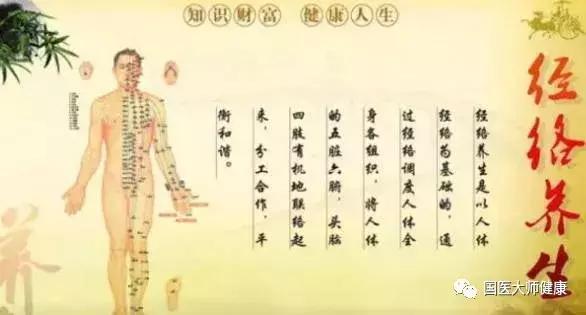 知识财富 健康人生
经络养生
经络养生是以人体
经络为基础的，通
过经络调度人体全
身各组织，将人体
的五脏六腑，头脑
四肢有机地联络起
来，分工合作，平
衡和谐。
养
国医大师健康